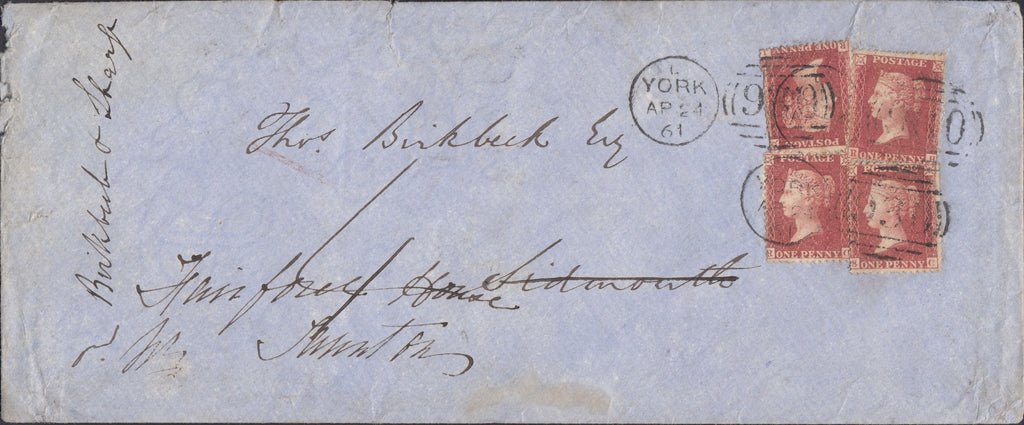 Birkbeck & Sharp
YORK
AP 24
61
Thos. Birkbeck Esq
House Sidmouth
Taunton
ONE PENNY
POSTAGE
POSTAGE
ONE PENNY
POSTAGE
ONE PENNY
ONE PENNY